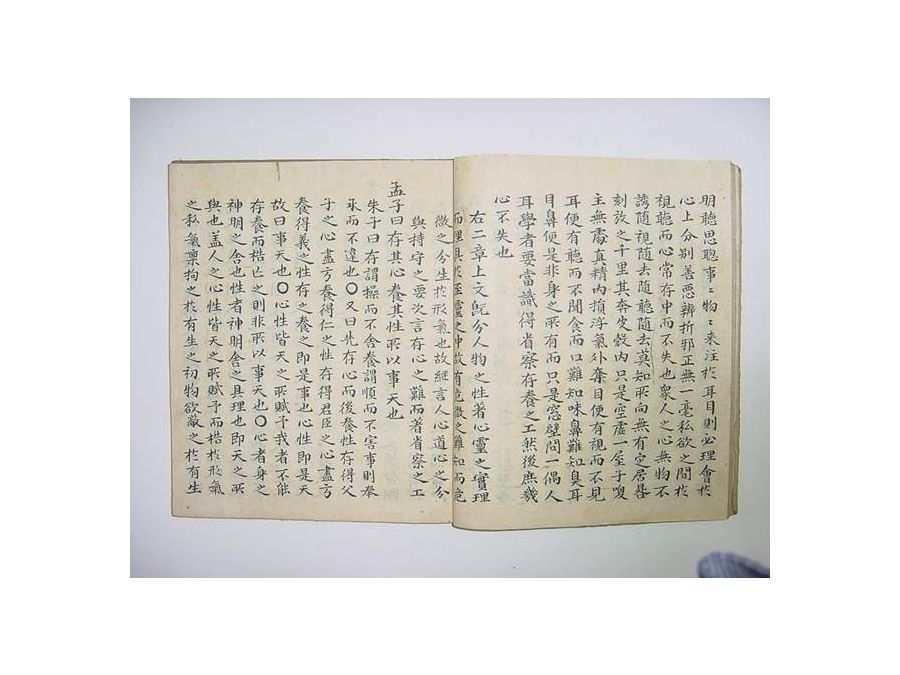 明聽思聰事〻物〻來注於耳目則必理會於
心上分別善惡辨折邪正無一毫私欲之間於
視聽而心常存中而不失也衆人之心無物不
誘隨視隨去隨聽隨去莫知所向無有定居晷
刻放之千里其奔皮殼内只是空虛一屋子嗅
主無處真精内損浮氣外奪目便有視而不見
耳便有聽而不聞食而口難知味鼻難知臭耳
目鼻便是非身之所有而只是窓壁間一偶人
耳學者要當識得省察存養之工然後庶幾
心不失也
右二章上文旣分人物之性著心靈之實理
而理具於至靈之中故有危微之難知而危
微之分生於形氣也故継言人心道心之分
與持守之要次言存心之難而著省察之工
孟子曰存其心養其性所以事天也
朱子曰存謂操而不舍養謂順而不害事則奉
承而不違也〇又曰先存心而後養性存得父
子之心盡方養得仁之性存得君臣之心盡方
養得義之性存之養之即是事也心性即是天
故曰事天也〇心性皆天之所賦予我者不能
存養而梏亡之則非所以事天也〇心者身之
神明之舍也性者神明舍之具理也即天之所
與也盖人之心性皆天之所賦予而梏於形氣
之私氣禀拘之於有生之初物欲蔽之於有生